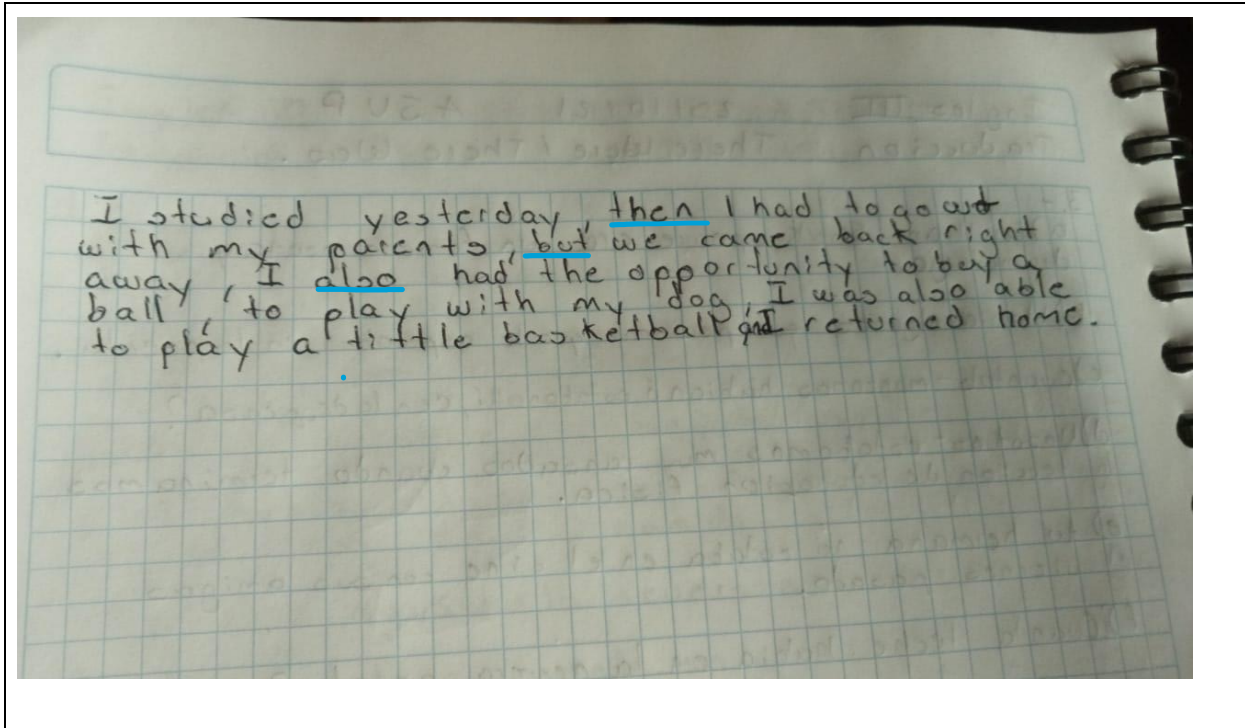 I studied yesterday, then I had to go out
with my parents, but we came back right
away, I also had the opportunity to buy a
ball, to play with my dog, I was also able
to play a little basketball and I returned home.